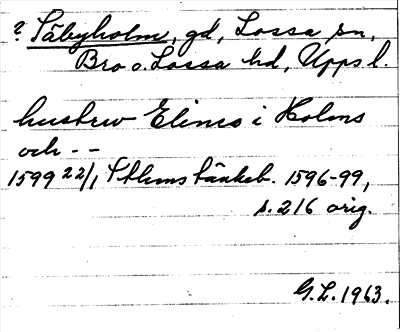 ? Säbyholm, gd, Lossa sn,
Bro o. Lossa hd, Upps l.
hustrw Elines i Holms
och - -
1599 22/1 Sthms tänkeb. 1596-99,
s. 216 orig.
G.L. 1963.